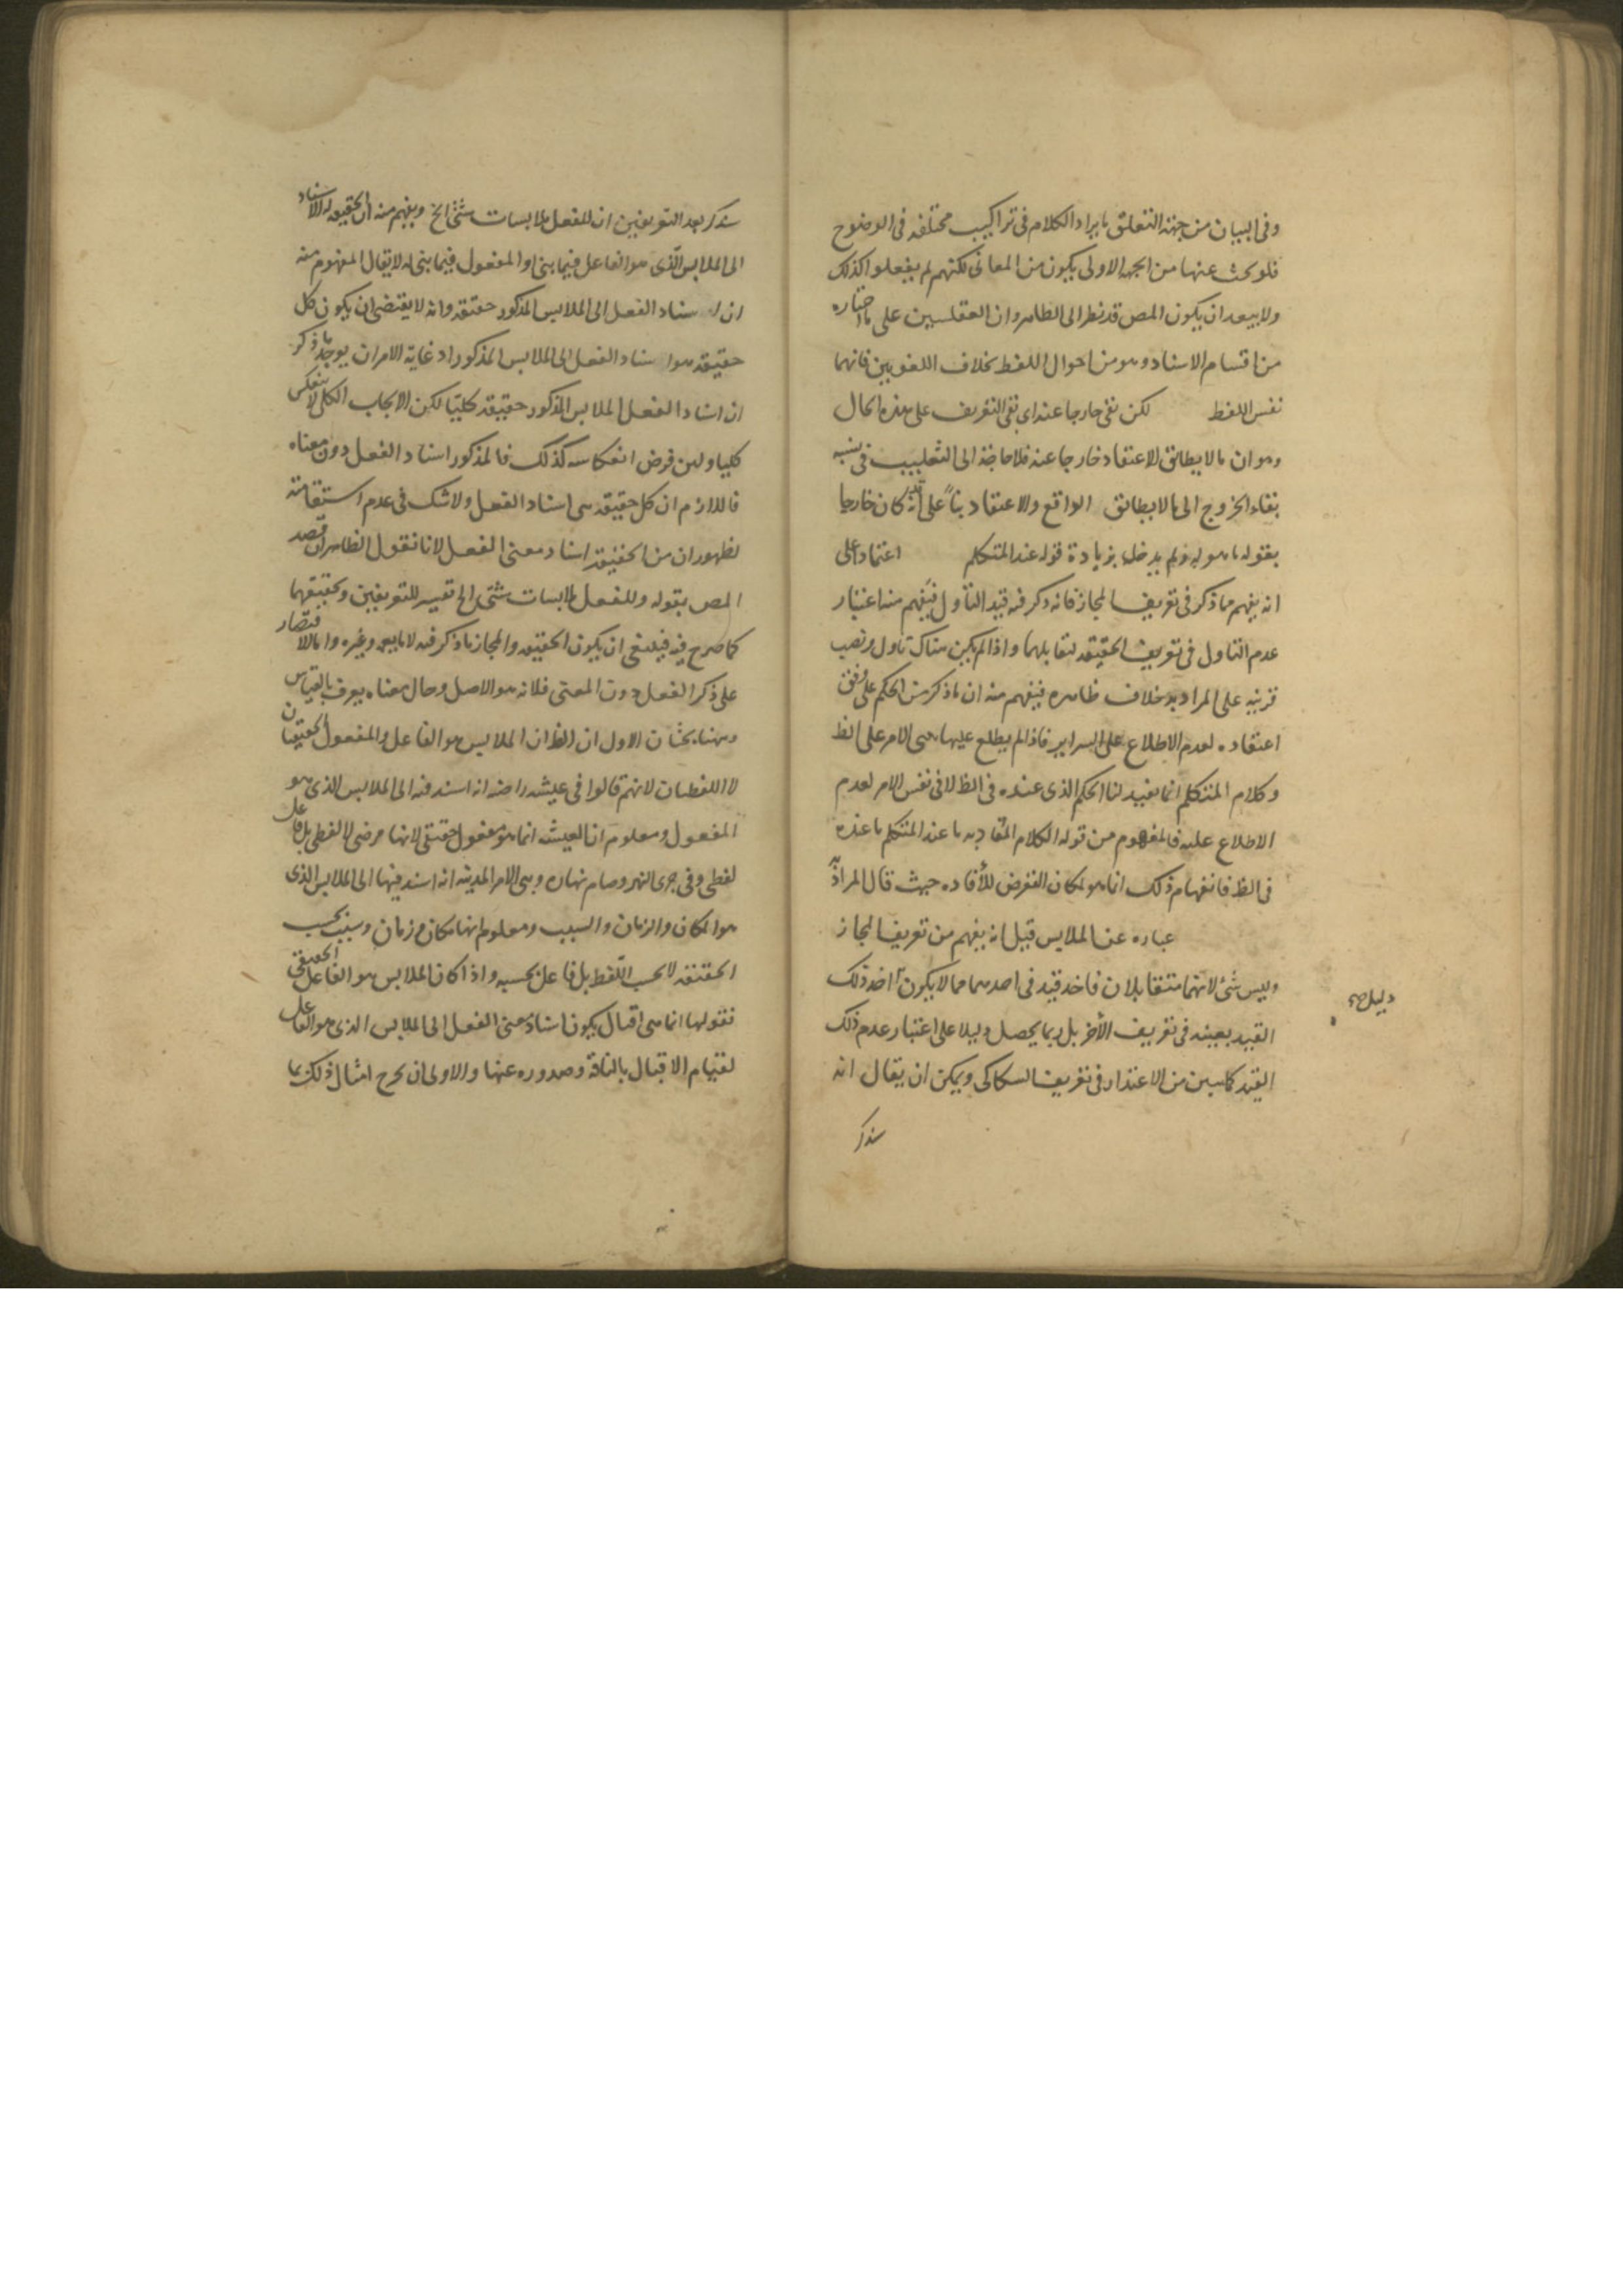 وفى البيان من جهة التعلق بايراد الكلام فى تراكيب مختلفة فى الوضوح
فلو بحث عنها من الجهة الاولى يكون من المعانى لكنهم لم يفعلوا كذلك
ولا يبعد ان يكون المص قد نظر الى الظاهر وان العقليين على ما اختاره
من اقسام الاسناد وهو من احوال اللفظ بخلاف اللغويين فانهما
نفس اللفظ لكن بقى خارجا عنه اى بقى التعريف على هذه الحال
وهو ان ما لا يطابق الاعتقاد خارجا عنه فلا حاجة الى التغليب فى نسبة
بقاء الخروج الى ما لا يطابق الواقع والاعتقاد بناء على انه كان خارجا
بقوله ما هو له ولم يدخل بزيادة قوله عند المتكلم اعتمادا على
انه يفهم مما ذكر فى تعريف المجاز فانه ذكر فيه قيد التأول فيفهم منه اعتبار
عدم التاول فى تعريف الحقيقة لتقابلهما واذا لم يكن هناك تاول ونصب
قرينة على المراد به خلاف ظاهره فيفهم منه ان ما ذكر من الحكم على وفق
اعتقاده لعدم الاطلاع على السراير فاذا لم يطلع عليها بنى الامر على الظ
وكلام المتكلم انما يفيد لنا الحكم الذى عنده فى الظ لا فى نفس الامر لعدم
الاطلاع عليه فالمفهوم من قوله الكلام المفاد به ما عند المتكلم ما عنده
فى الظ فانفهام ذلك انما هو لمكان التعرض للأفادة حيث قال المراد به
عبارة عن الملابس قيل انه يفهم من تعريف المجاز
وليس شئ لانهما متقابلان فاخذ قيد فى احدهما مما لا يكون اخذ ذلك
دليل صح
القيد بعينه فى تعريف الأخر بل ربما يحصل دليلا على اعتبار عدم ذلك
القيد كما سبق من الاعتذار فى تعريف السكاكى ويمكن ان يقال انه
سذكر
سذكر بعد التعريفين ان للفعل ملابسات شتى الخ ويفهم منه ان الحقيقة الاسناد
الى الملابس الذى هو الفاعل فيما بنى او المفعول فيما بنى له لا يقال المفهوم منه
ان اسناد الفعل الى الملابس المذكور حقيقة وانه لا يقتضى ان يكون كل
حقيقة هو اسناد الفعل الى الملابس المذكور اذ غاية الامر ان يوجد ما ذكر
ان اسناد الفعل الملابس المذكور حقيقة كليا لكن الايجاب الكلى لا ينعكس
كليا ولئن فرض انعكاسه كذلك فالمذكور اسناد الفعل دون معناه
فاللازم ان كل حقيقة هى اسناد الفعل ولا شك فى عدم استقامته
لظهور ان من الحقيقة اسناد معنى الفعل لانا نقول الظاهر ان قصد
المص بقوله وللفعل ملابسات شتى الخ تفسير للتعريفين وتحقيقهما
كما صرح فيه فينبغى ان يكون الحقيقة والمجاز ما ذكر فيه لا ما يعمه وغيره واما الاقتصار
على ذكر الفعل دون المعنى فلانه هو الاصل وحال معناه يعرف بالقياس
وههنا بحثان الاول ان الظ ان الملابس هو الفاعل والمفعول الحقيقيان
لا اللفظيان لانهم قالوا فى عيشة راضية انه اسند فيه الى الملابس الذى هو
المفعول ومعلوم ان العيشة انما هو مفعول حقيقى لانها مرضى لا لفظى بل فاعل
لفظى وفى جرى النهر وصام نهاره وبنى الامر المدينة انه اسند فيها الى الملابس الذى
هو المكان والزمان والسبب ومعلوم انها مكان وزمان وسبب بحسب
الحقيقة لا بحسب اللفظ بل فاعل بحسبه واذا كان الملابس هو الفاعل الحقيقى
فقولها انما هى اقبال يكون اسناد معنى الفعل الى الملابس الذى هو الفاعل
لقيام الاقبال بالناقة وصدوره عنها والاولى ان يخرج امثال ذلك بما